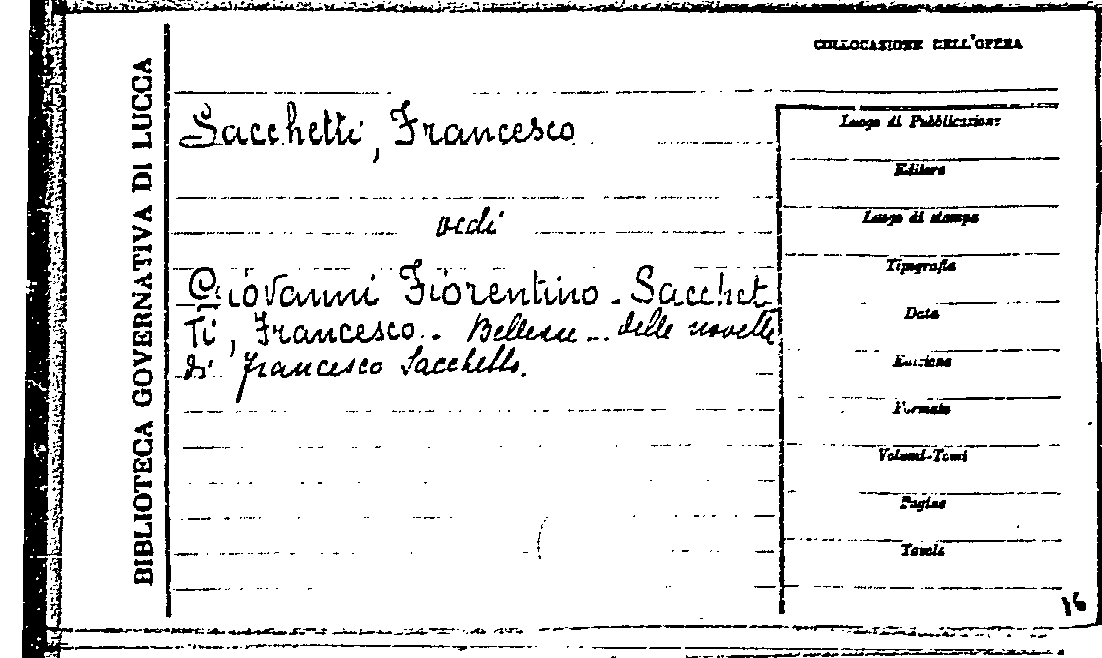 COLLOCAZIONE DELL'OPERA
BIBLIOTECA GOVERNATIVA DI LUCCA
Sacchetti, Francesco
vedi
Giovanni Fiorentino - Sacchet
ti, Francesco.. Bellezze .. delle novelle
di Francesco Sacchetti.
Luogo di Pubblicazione
Editore
Luogo di stampa
Tipografia
Data
Edizione
Formato
Volumi-Tomi
Pagine
Tavole
16